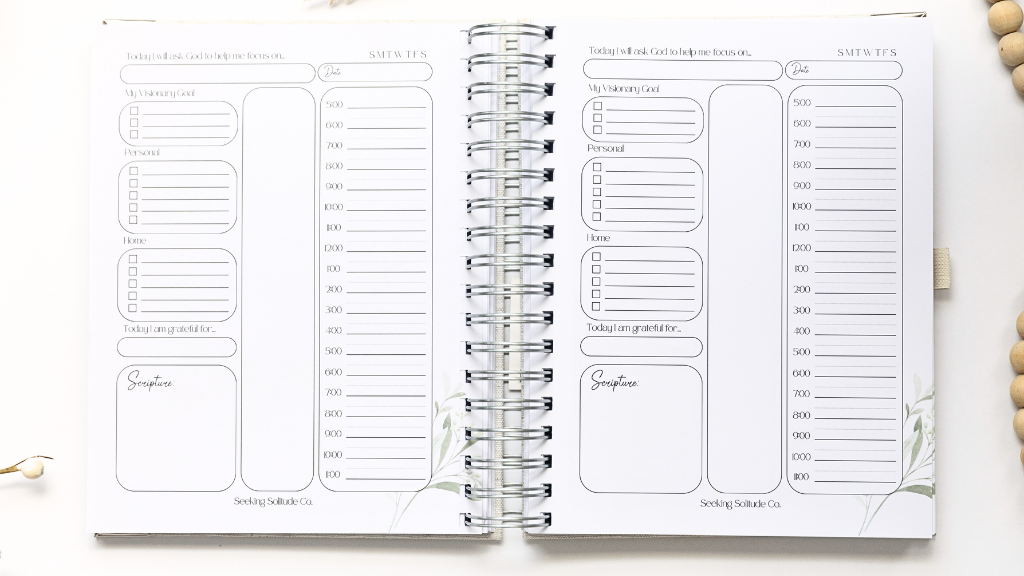 Today I will ask God to help me focus on...
S M T W T F S
Date
My Visionary Goal
Personal
Home
Today I am grateful for...
Scripture:
5:00
6:00
7:00
8:00
9:00
10:00
11:00
12:00
1:00
2:00
3:00
4:00
5:00
6:00
7:00
8:00
9:00
10:00
11:00
Seeking Solitude Co.
Today I will ask God to help me focus on...
S M T W T F S
Date
My Visionary Goal
Personal
Home
Today I am grateful for...
Scripture:
5:00
6:00
7:00
8:00
9:00
10:00
11:00
12:00
1:00
2:00
3:00
4:00
5:00
6:00
7:00
8:00
9:00
10:00
11:00
Seeking Solitude Co.